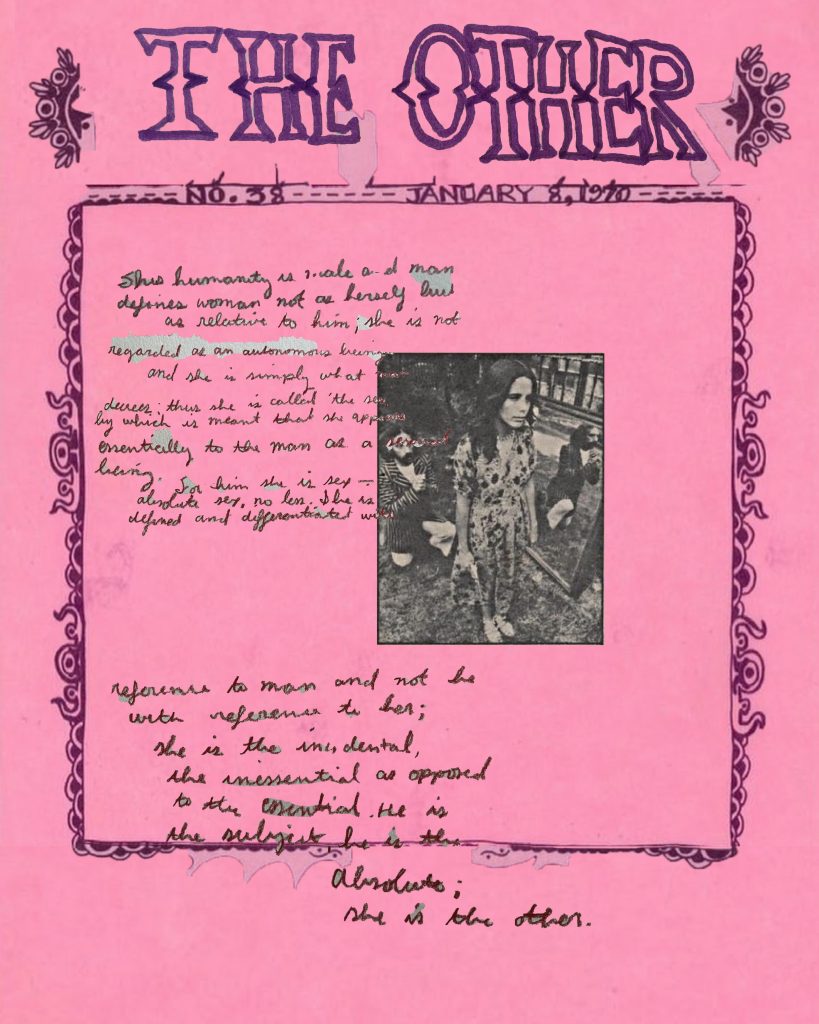 THE OTHER
NO. 38 JANUARY 8, 1970
Thus humanity is male and man
defines woman not as herself but
as relative to him; she is not
regarded as an autonomous being
and she is simply what man
decrees; thus she is called 'the sex,
by which is meant that she appears
essentially to the man as a sexual
being. For him she is sex —
absolute sex, no less. She is
defined and differentiated with
reference to man and not he
with reference to her;
she is the incidental,
the inessential as opposed
to the essential. He is
the subject, he is the
Absolute;
she is the other.